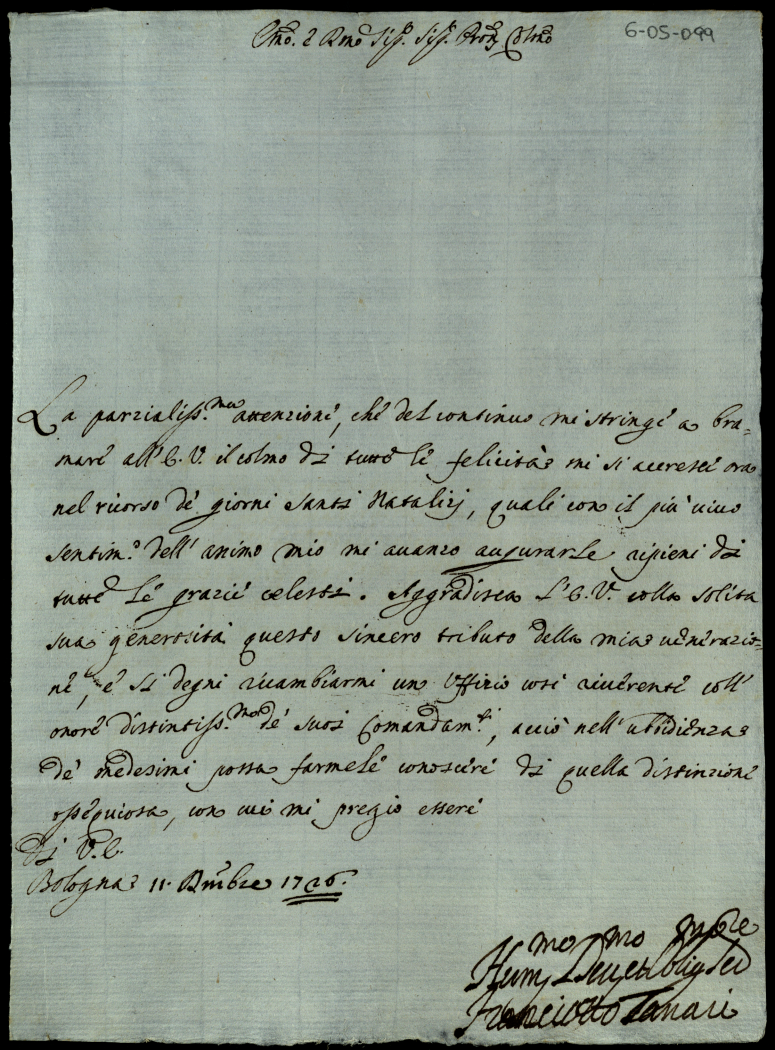 Emo. e Rmo Sig.r Sig.r Pron Colmo
6-05-099
La parzialiss.ma attenzione, che del continuo mi stringe a bra-
mare all'E.V. il colmo di tutte le felicità mi si accresce ora
nel ricorso de' giorni Santi Natalizj, quali con il più vivo
sentim.o dell'animo mio mi avanzo augurarle ripieni di
tutte le grazie celesti. Aggradisca l'E.V. colla solita
sua generosità questo sincero tributo della mia venerazio-
ne, e si degni ricambiarmi un Uffizio così riverente coll'
onore distintiss.mo de' suoi Comandam.ti, acciò nell'ubbidienza
de' medesimi possa farmele conoscere di quella distinzione
ossequiosa, con cui mi pregio essere
di V.E.
Bologna 11. Xmbre 1726.
mo mo re
Hum Dev et oblig Ser
Franciotto Tanari